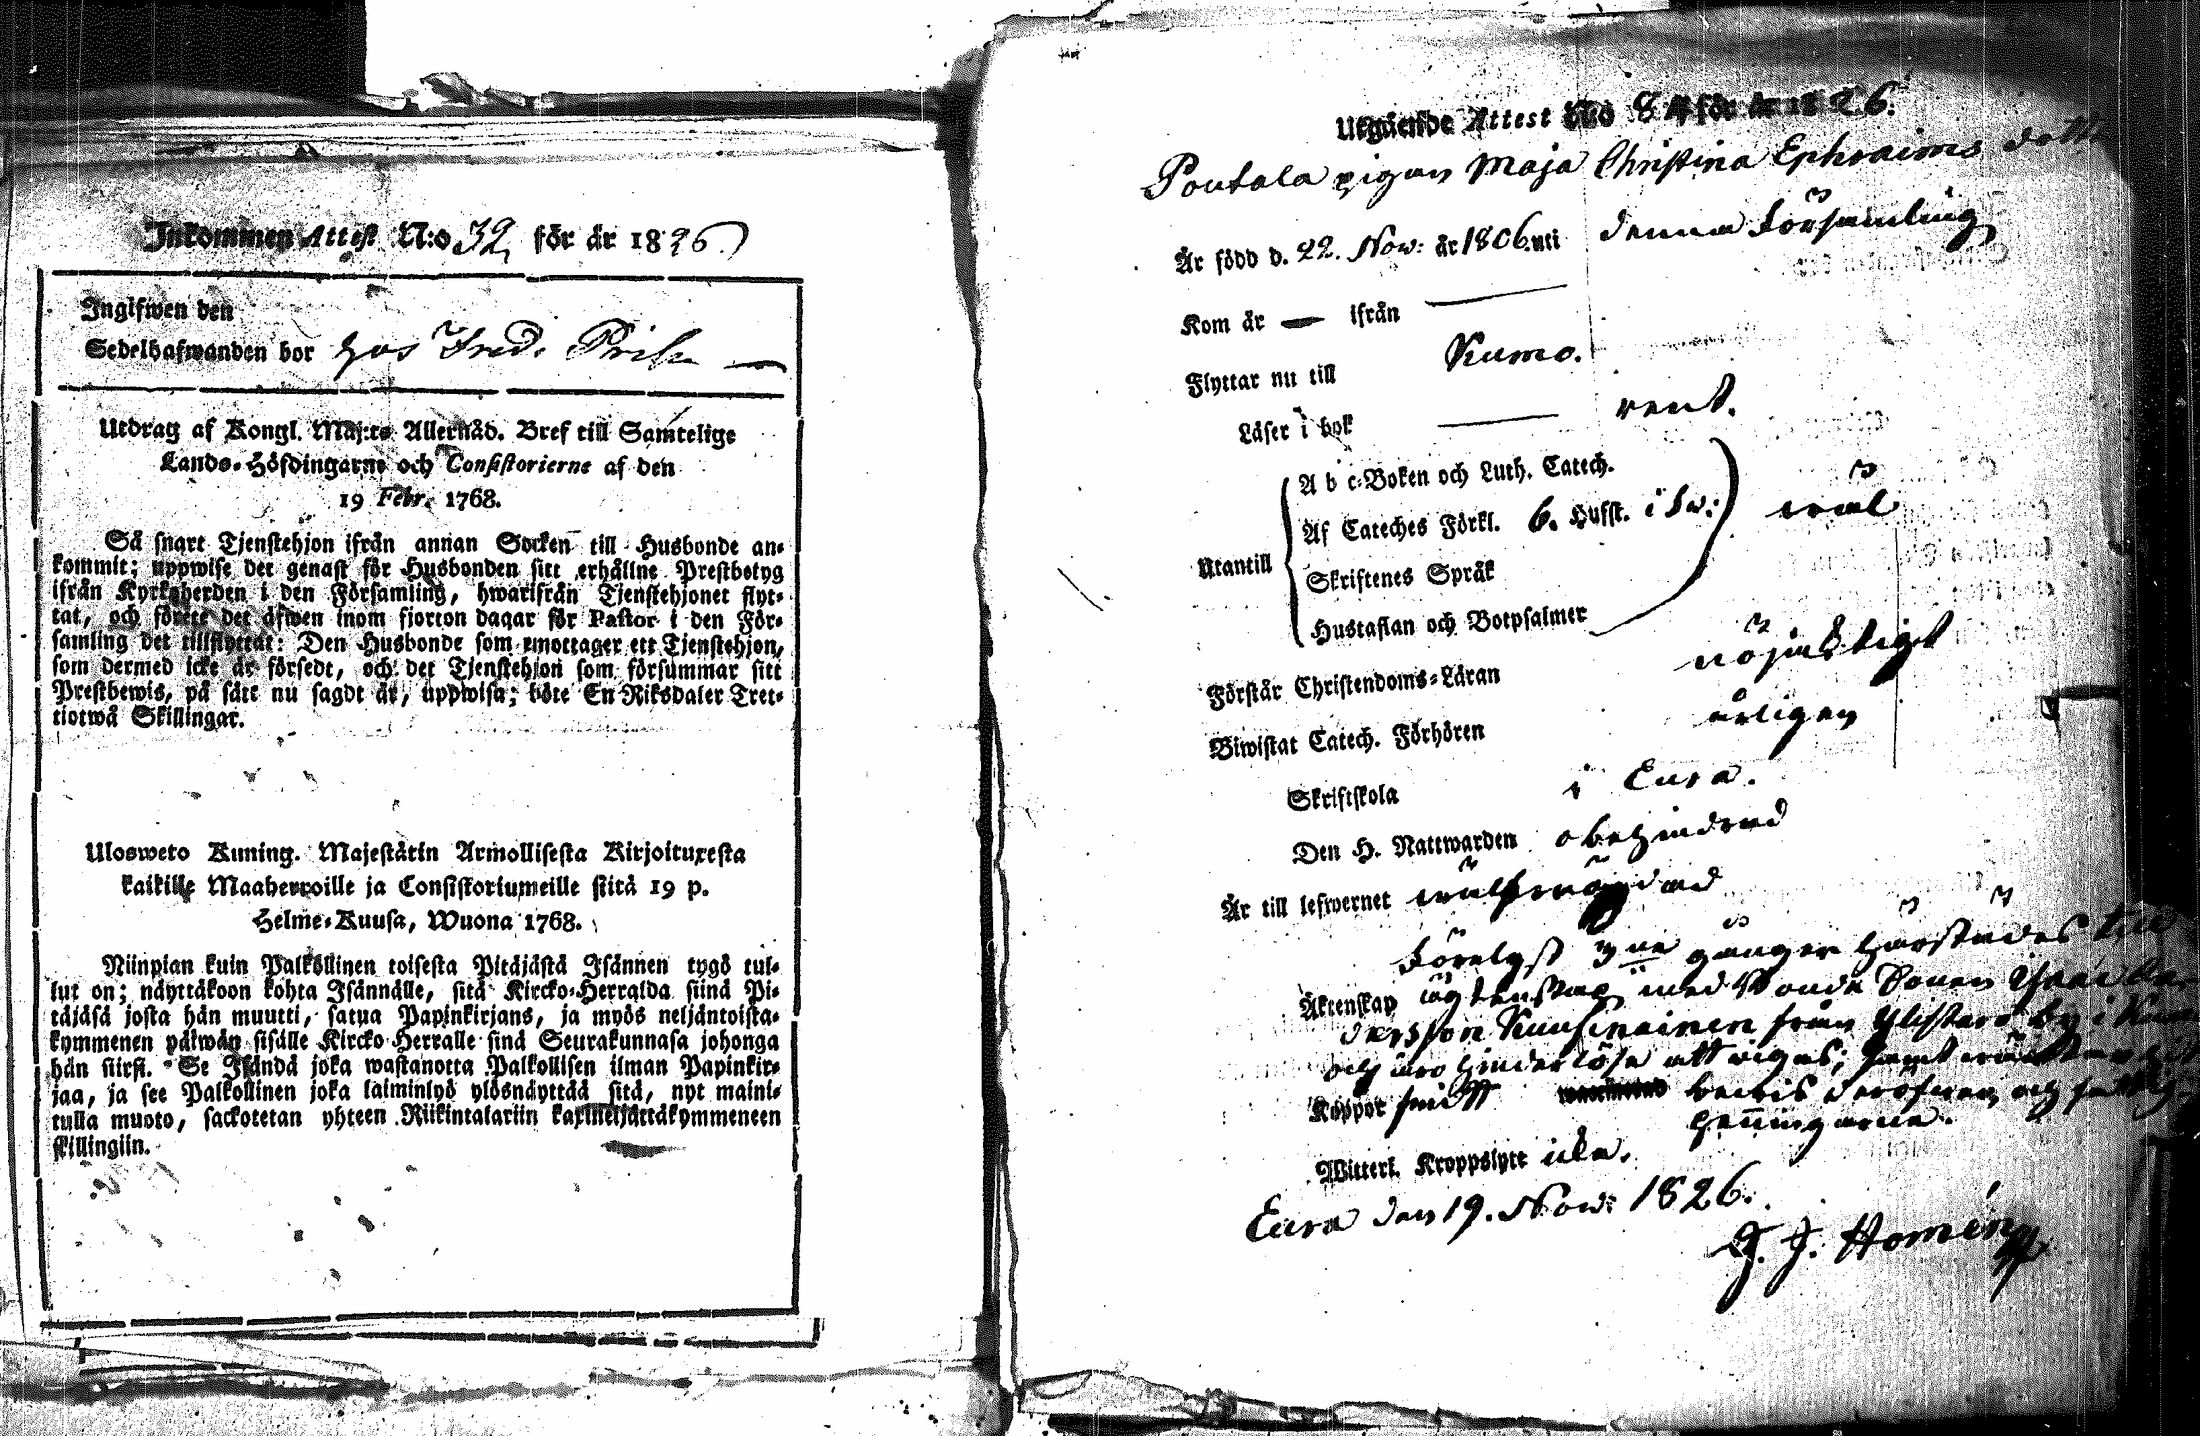 Inkommen Attest N:o 32 för år 1826
Ingifwen den
Sedelhafwanden bor hos
Utdrag af Kongl. Maj:ts Allernåd. Bref till Samtelige
Lands-Höfdingarne och Consistorierne af den
19 Febr. 1768.
Så snart Tjenstehjon ifrån annan Socken till Husbonde an-
kommit; uppwise det genast för Husbonden sitt erhållne Prestbetyg
ifrån Kyrkoherden i den Församling, hwarifrån Tjenstehjonet flyt-
tat, och förete det äfwen inom fjorton dagar för Pastor i den För-
samling det tillflyttat: Den Husbonde som emottager ett Tjenstehjon,
som dermed icke är försedt, och det Tjenstehjon som försummar sitt
Prestbewis, på sätt nu sagdt är, uppwisa; böte En Riksdaler Tret-
tiotwå Skillingar.
Ulosweto Kuning. Majestätin Armollisesta Kirjoituxesta
kaikille Maaherroille ja Consistoriumeille siitä 19 p.
Helme-Kuusa, Wuona 1768.
Niinpian kuin Palkollinen toisesta Pitäjästä Isännen tygö tul-
lut on; näyttäkoon kohta Isännälle, sitä Kircko-Herralda siinä Pi-
täjäsä josta hän muutti, saatua Papinkirjans, ja myös neljäntoista-
kymmenen päiwän sisälle Kircko Herralle sinä Seurakunnasa johonga
hän siirsi. Se Isändä joka wastanotta Palkollisen ilman Papinkir-
jaa, ja see Palkollinen joka laiminlyö ylösnäyttää sitä, nyt maini-
tulla muoto, sackotetan yhteen Riikintalariin kaxineljättäkymmeneen
skillingiin.
Utgående Attest No 84 för år 1826.
Poutala pigan Maja Christina Ephraims dott
Är född d. 22. Nov: år 1806 uti denna Församling
Kom år — ifrån —
Flyttar nu till Kumo.
Läser i bok — rent.
Utantill
A b c-Boken och Luth. Catech.
Af Cateches Förkl. 6. Hufst. i Sw: wäl
Skriftenes Språk
Hustaflan och Botpsalmer
Förstår Christendoms-Läran nöjaktigt
Biwistat Catech. Förhören årligen
Skriftskola i Eura.
Den H. Nattwarden obehindrad
Är till lefwernet wälfrägdad
Förelyst 3ne gånger härstädes till
Äktenskap ägtenskap med Bonde Sonen
dersson Kuusinainen från Ylistaro by i Kumo
och äro hinderlöse att vigas; samt
Koppor haft bewis deröfwer, och fattig
penningarne.
Witterl. Kroppslyte icke.
Eura den 19. Nov: 1826.
J. J. Homén